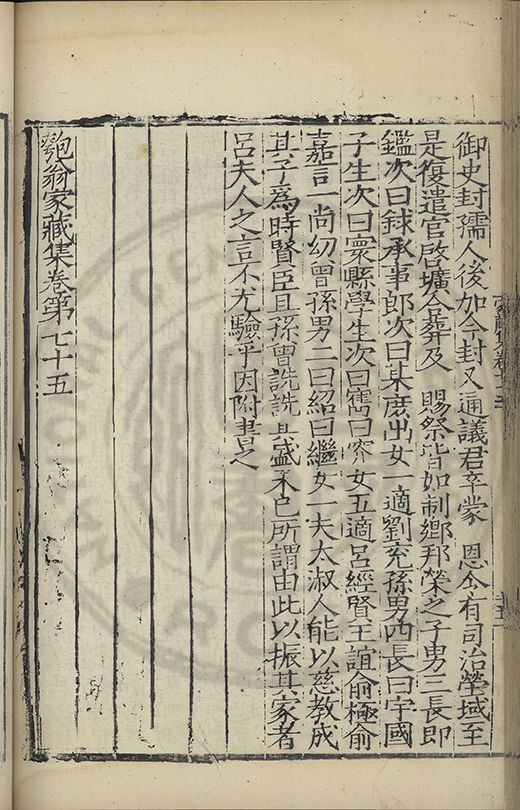 御史封孺人後加今封又通議君卒蒙　恩命有司治塋域至
是復遣官啓壙合葬及　賜祭皆如制鄉邦榮之子男三長即
鑑次曰銶承事郎次曰某庶出女一適劉兖孫男四長曰宇國
子生次曰寰縣學生次曰寯曰寊女五適呂經賢王誼俞極俞
嘉言一尚幼曾孫男二曰紹曰繼女一夫太淑人能以慈教成
其子為時賢臣且孫曾詵詵其盛未已所謂由此以振其家者
呂夫人之言不尤驗乎因附書之
匏翁家藏集卷第七十五